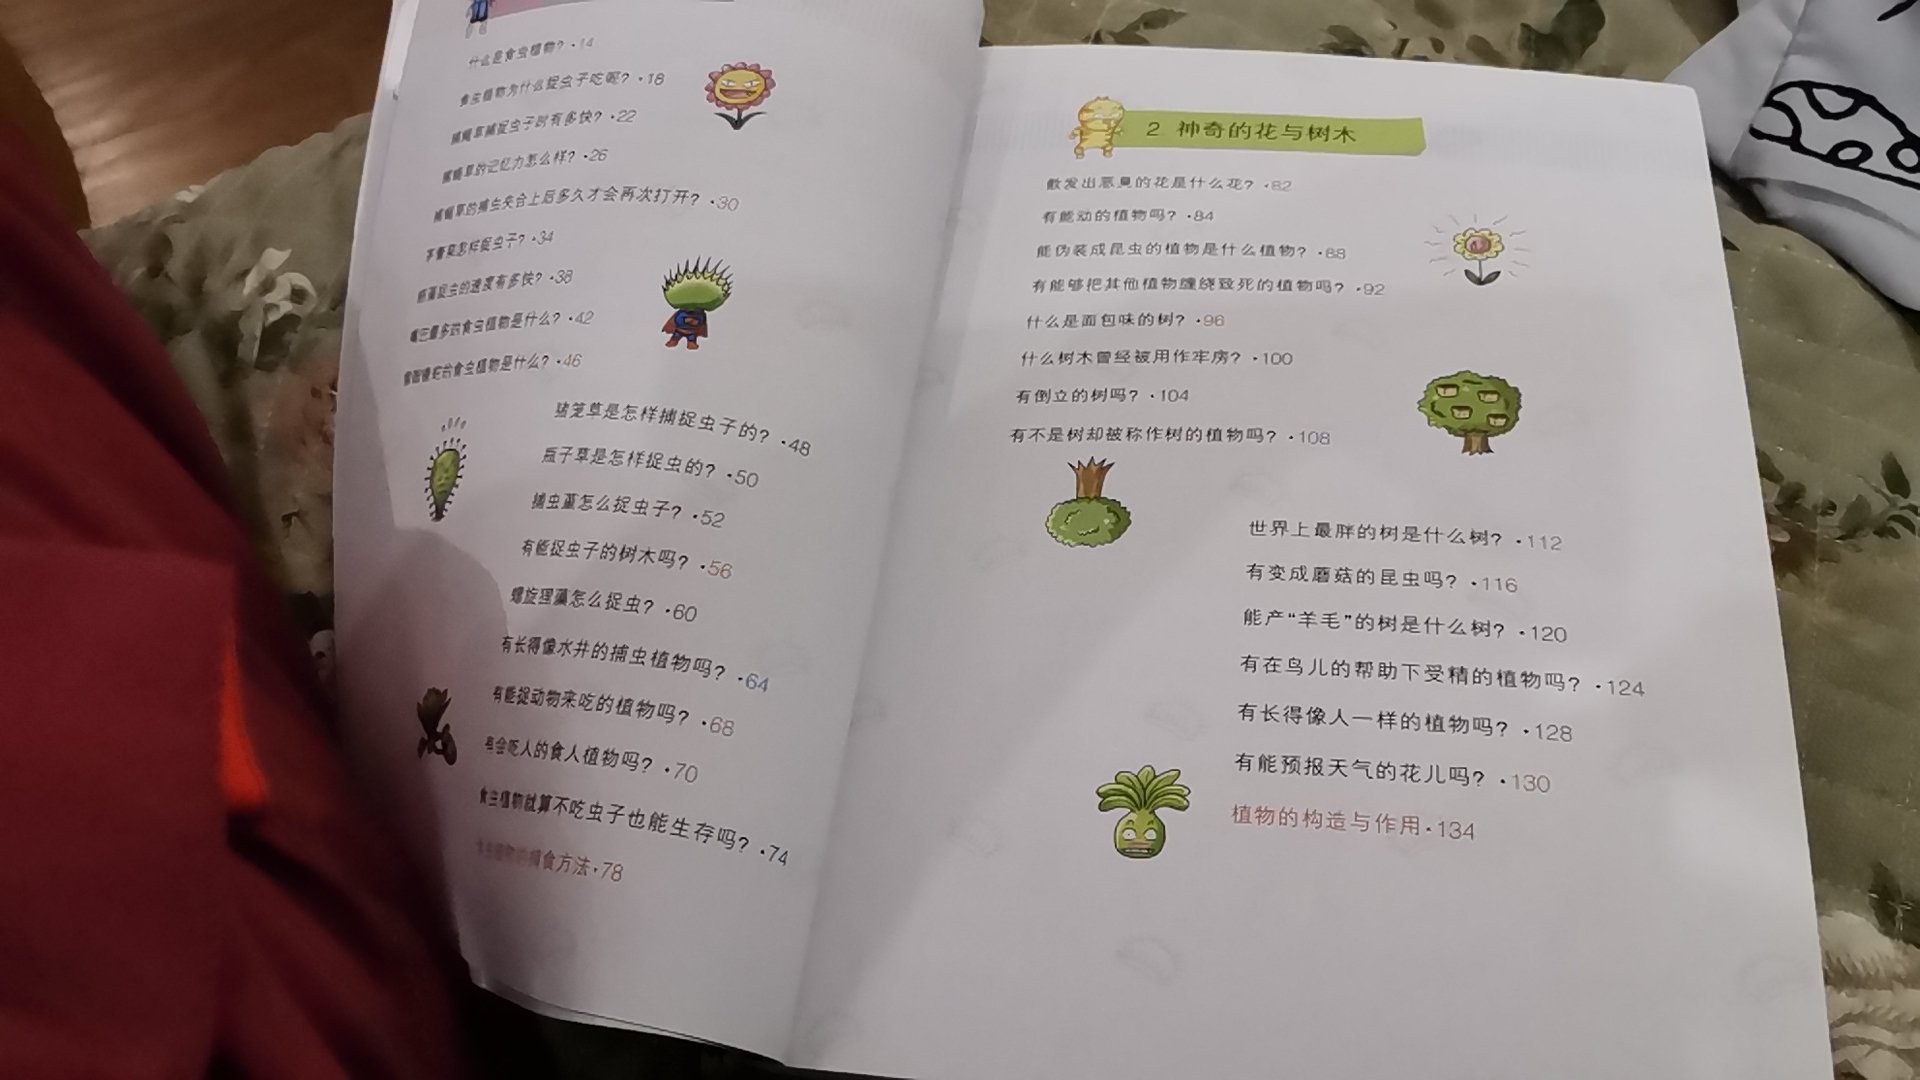 什么是食虫植物？·14
食虫植物为什么捉虫子吃呢？·18
捕蝇草捕捉虫子时有多快？·22
捕蝇草的记忆力怎么样？·26
捕蝇草的捕虫夹合上后多久才会再次打开？·30
茅膏菜怎样捉虫子？·34
狸藻捉虫的速度有多快？·38
嘴巴最多的食虫植物是什么？·42
食虫植物是什么？·46
猪笼草是怎样捕捉虫子的？·48
瓶子草是怎样捉虫的？·50
捕虫堇怎么捉虫子？·52
有能捉虫子的树木吗？·56
螺旋狸藻怎么捉虫？·60
有长得像水井的捕虫植物吗？·64
有能捉动物来吃的植物吗？·68
有会吃人的食人植物吗？·70
食虫植物就算不吃虫子也能生存吗？·74
食虫植物的捕食方法·78
2 神奇的花与树木
散发出恶臭的花是什么花？·82
有能动的植物吗？·84
能伪装成昆虫的植物是什么植物？·88
有能够把其他植物缠绕致死的植物吗？·92
什么是面包味的树？·96
什么树木曾经被用作牢房？·100
有倒立的树吗？·104
有不是树却被称作树的植物吗？·108
世界上最胖的树是什么树？·112
有变成蘑菇的昆虫吗？·116
能产“羊毛”的树是什么树？·120
有在鸟儿的帮助下受精的植物吗？·124
有长得像人一样的植物吗？·128
有能预报天气的花儿吗？·130
植物的构造与作用·134